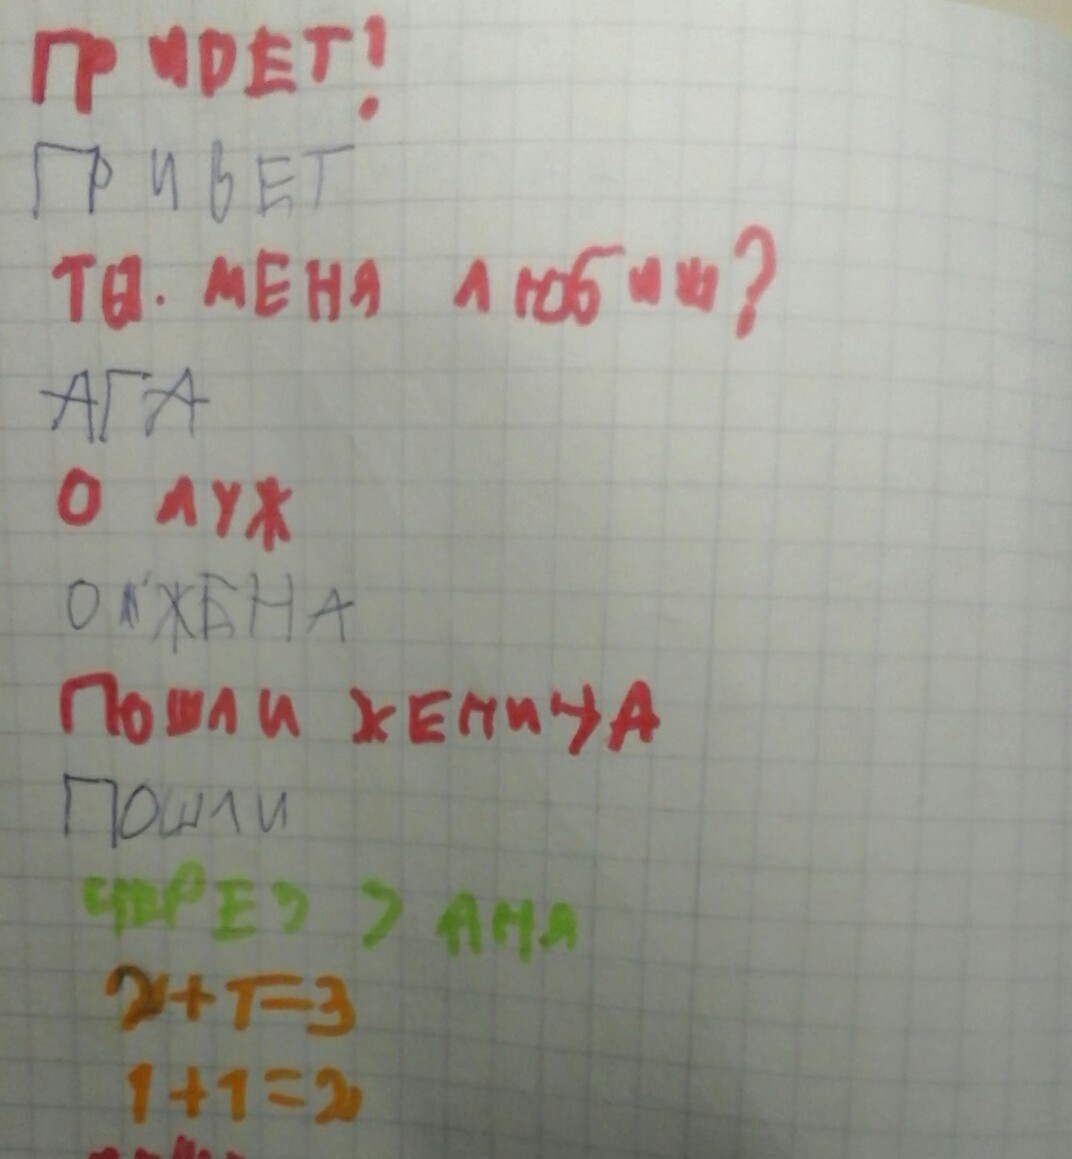 ПРИВЕТ!
ПРИВЕТ
ТЫ. МЕНЯ ЛЮБИШ?
АГА
О МУЖ
О ЖЕНА
ПОШЛИ ЖЕНИЦА
ПОШЛИ
ЧЕРЕЗ 3 ДНЯ
2+1=3
1+1=2